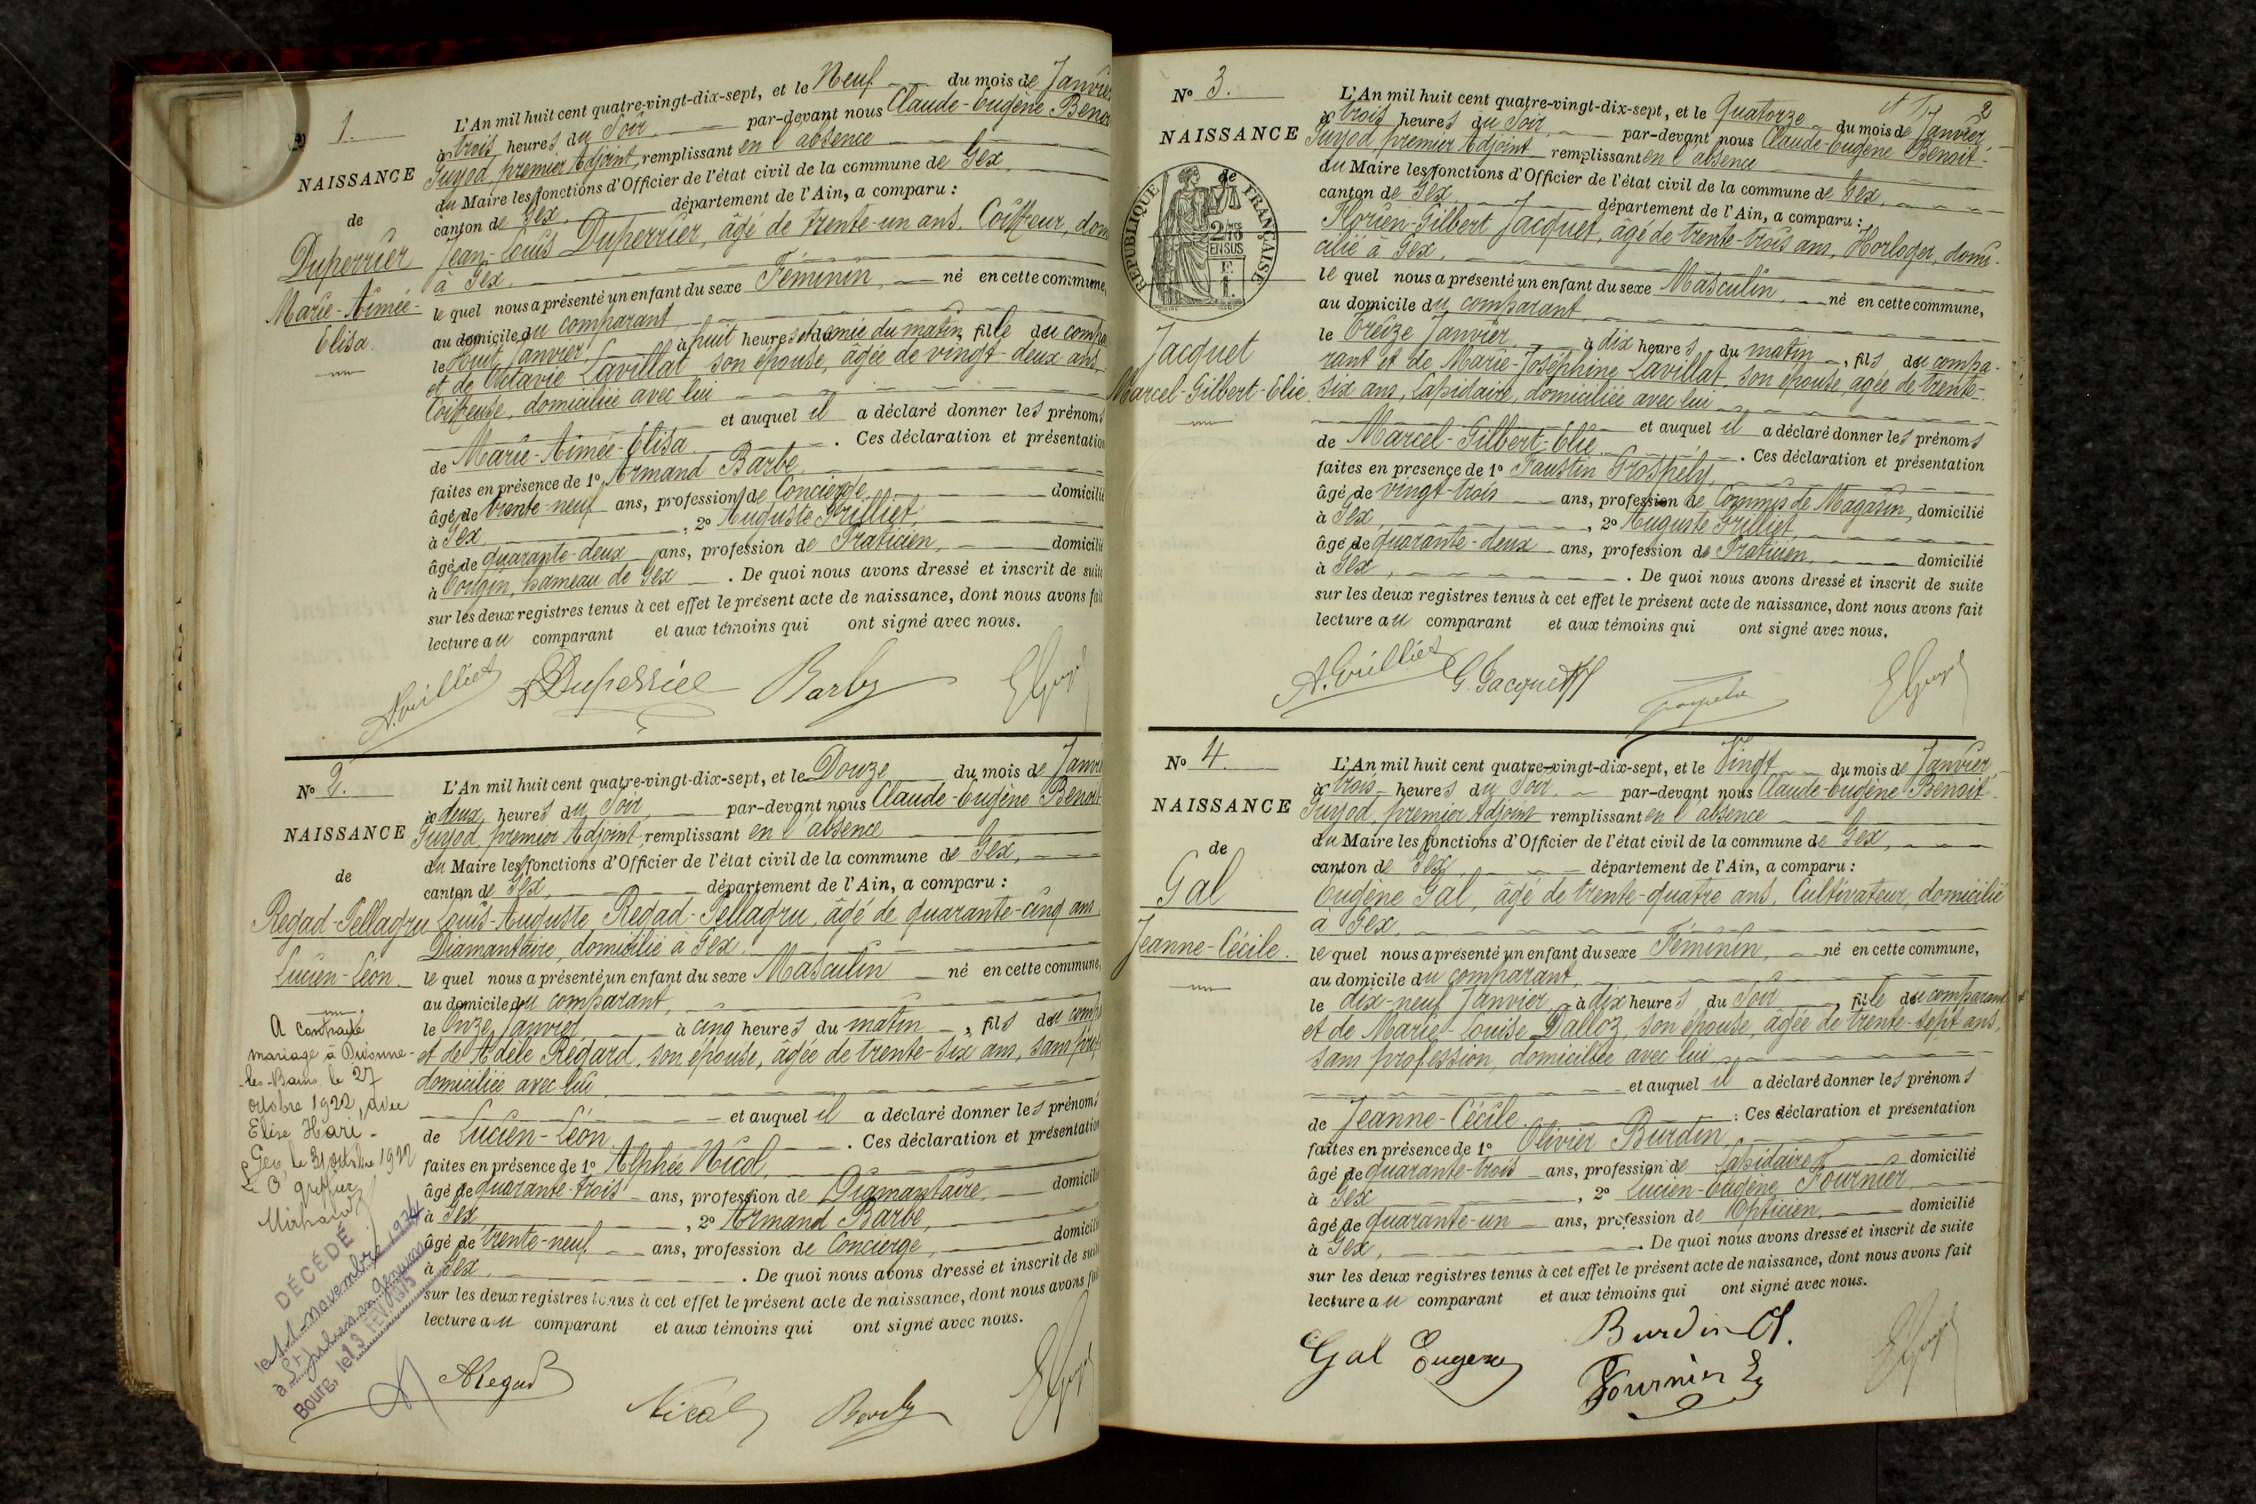 1.
NAISSANCE
de
Duperrier
Marie-Aimée-
Elisa.
L'An mil huit cent quatre-vingt-dix-sept, et le Neuf du mois de Janvier
à trois heures du Soir par-devant nous Claude-Eugène-Benoit
Guyod, premier Adjoint, remplissant en l'absence
du Maire les fonctions d'Officier de l'état civil de la commune de Gex,
canton de Gex, département de l'Ain, a comparu :
Jean-Louis Duperrier, âgé de trente-un ans, Coiffeur, dom
à Gex.
le quel nous a présenté un enfant du sexe Féminin, né en cette commune,
au domicile du comparant,
le Huit Janvier, à huit heures et demie du matin, fille du compa
et de Octavie Lavillat son épouse, âgée de vingt-deux ans,
Coiffeuse, domiciliée avec lui
et auquel il a déclaré donner les prénoms
de Marie-Aimée-Elisa. Ces déclaration et présentation
faites en présence de 1º Armand Barbe
âgé de trente-neuf ans, profession de Concierge, domicilié
à Gex, 2º Auguste Grilliet,
âgé de quarante-deux ans, profession de Praticien, domicilié
à Tougin, hameau de Gex. De quoi nous avons dressé et inscrit de suite
sur les deux registres tenus à cet effet le présent acte de naissance, dont nous avons fait
lecture au comparant et aux témoins qui ont signé avec nous.
A. Grilliet Duperrier Barbe EGuyod
Nº 2.
NAISSANCE
de
Regad-Pellagru
Lucien-Léon.
A contracté
mariage à Divonne-
-les-Bains, le 27
octobre 1922, avec
Elise Hari-
Gex, le 31 octobre 1922
Le Greffier
DÉCÉDÉ
le 11 novembre 1974
à St Julien en Genevois
Bourg, le 13 FEV 1975
L'An mil huit cent quatre-vingt-dix-sept, et le Douze du mois de Janvi
à deux heures du Soir par-devant nous Claude-Eugène Benoit
Guyod, premier Adjoint, remplissant en l'absence
du Maire les fonctions d'Officier de l'état civil de la commune de Gex,
canton de Gex, département de l'Ain, a comparu :
Louis-Auguste Regad-Pellagru, âgé de quarante-cinq ans
Diamantaire, domicilié à Gex.
le quel nous a présenté un enfant du sexe Masculin né en cette commune,
au domicile du comparant,
le Onze Janvier à cinq heures du matin, fils du comp
et de Adèle Régard, son épouse, âgée de trente-six ans, sans prof
domiciliée avec lui
et auquel il a déclaré donner les prénoms
de Lucien-Léon. Ces déclaration et présentation
faites en présence de 1º Alphée Nicol,
âgé de quarante-trois ans, profession de Diamantaire, domicilié
à Gex, 2º Armand Barbe,
âgé de trente-neuf ans, profession de Concierge, domicilié
à Gex. De quoi nous avons dressé et inscrit de suite
sur les deux registres tenus à cet effet le présent acte de naissance, dont nous avons fai
lecture au comparant et aux témoins qui ont signé avec nous.
ARegad Nicol Barbe EGuyod
2
Nº 3.
NAISSANCE
de
RÉPUBLIQUE FRANÇAISE
2/10mes
EN SUS
Jacquet
Marcel-Gilbert-Elie
L'An mil huit cent quatre-vingt-dix-sept, et le Quatorze du mois de Janvier
à trois heures du Soir, par-devant nous Claude-Eugène Benoit
Guyod, premier Adjoint remplissant en l'absence
du Maire les fonctions d'Officier de l'état civil de la commune de Gex,
canton de Gex, département de l'Ain, a comparu :
Florien-Gilbert Jacquet, âgé de trente-trois ans, Horloger, domi-
cilié à Gex,
le quel nous a présenté un enfant du sexe Masculin, né en cette commune,
au domicile du comparant,
le Treize Janvier, à dix heures du matin, fils du compa-
rant et de Marie-Joséphine Lavillat, son épouse, âgée de trente-
six ans, Lapidaire, domiciliée avec lui
et auquel il a déclaré donner les prénoms
de Marcel-Gilbert-Elie. Ces déclaration et présentation
faites en présence de 1º Faustin Grospely,
âgé de vingt-trois ans, profession de Commis de Magasin, domicilié
à Gex, 2º Auguste Grilliet,
âgé de quarante-deux ans, profession de Praticien, domicilié
à Gex. De quoi nous avons dressé et inscrit de suite
sur les deux registres tenus à cet effet le présent acte de naissance, dont nous avons fait
lecture au comparant et aux témoins qui ont signé avec nous.
A. Grilliet G. Jacquet EGuyod
Nº 4.
NAISSANCE
de
Gal
Jeanne-Cécile.
L'An mil huit cent quatre-vingt-dix-sept, et le Vingt du mois de Janvier
à trois heures du Soir, par-devant nous Claude-Eugène Benoit
Guyod, premier Adjoint remplissant en l'absence
du Maire les fonctions d'Officier de l'état civil de la commune de Gex,
canton de Gex, département de l'Ain, a comparu :
Eugène Gal, âgé de trente-quatre ans, Cultivateur, domicilié
à Gex,
le quel nous a présenté un enfant du sexe Féminin, né en cette commune,
au domicile du comparant,
le dix-neuf Janvier, à dix heures du Soir, fille du comparant
et de Marie-Louise Dalloz, son épouse, âgée de trente-sept ans,
sans profession, domiciliée avec lui,
et auquel il a déclaré donner les prénoms
de Jeanne-Cécile. Ces déclaration et présentation
faites en présence de 1º Olivier Burdin,
âgé de quarante-trois ans, profession de Lapidaire, domicilié
à Gex, 2º Lucien-Eugène Fournier,
âgé de quarante-un ans, profession de Opticien, domicilié
à Gex. De quoi nous avons dressé et inscrit de suite
sur les deux registres tenus à cet effet le présent acte de naissance, dont nous avons fait
lecture au comparant et aux témoins qui ont signé avec nous.
Gal Eugene Burdin O. EGuyod
Fournier E